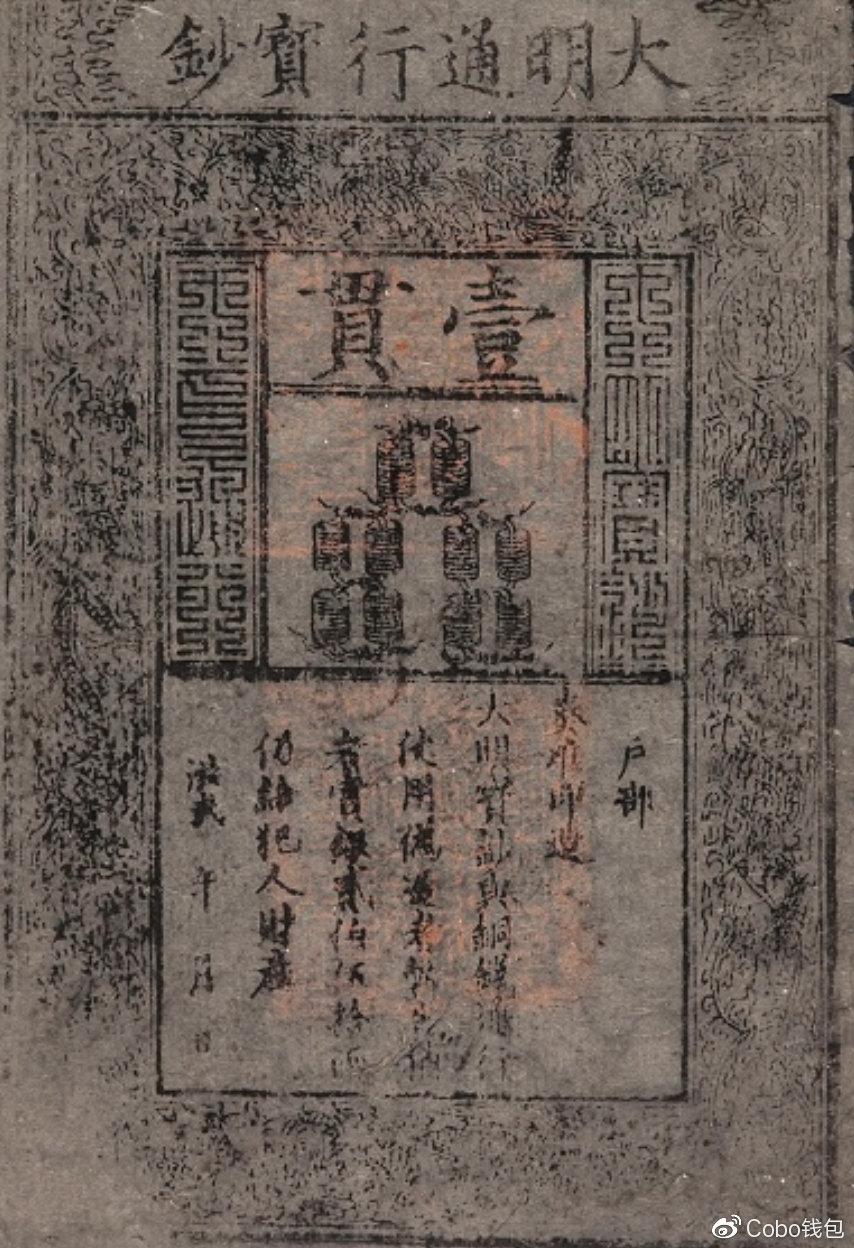 大明通行寶鈔
壹貫
大明寶鈔
天下通行
戶部
奏准印造
大明寶鈔與銅錢通行
使用偽造者斬告捕
者賞銀貳伯伍拾兩
仍給犯人財產
洪武 年 月 日
Cobo钱包